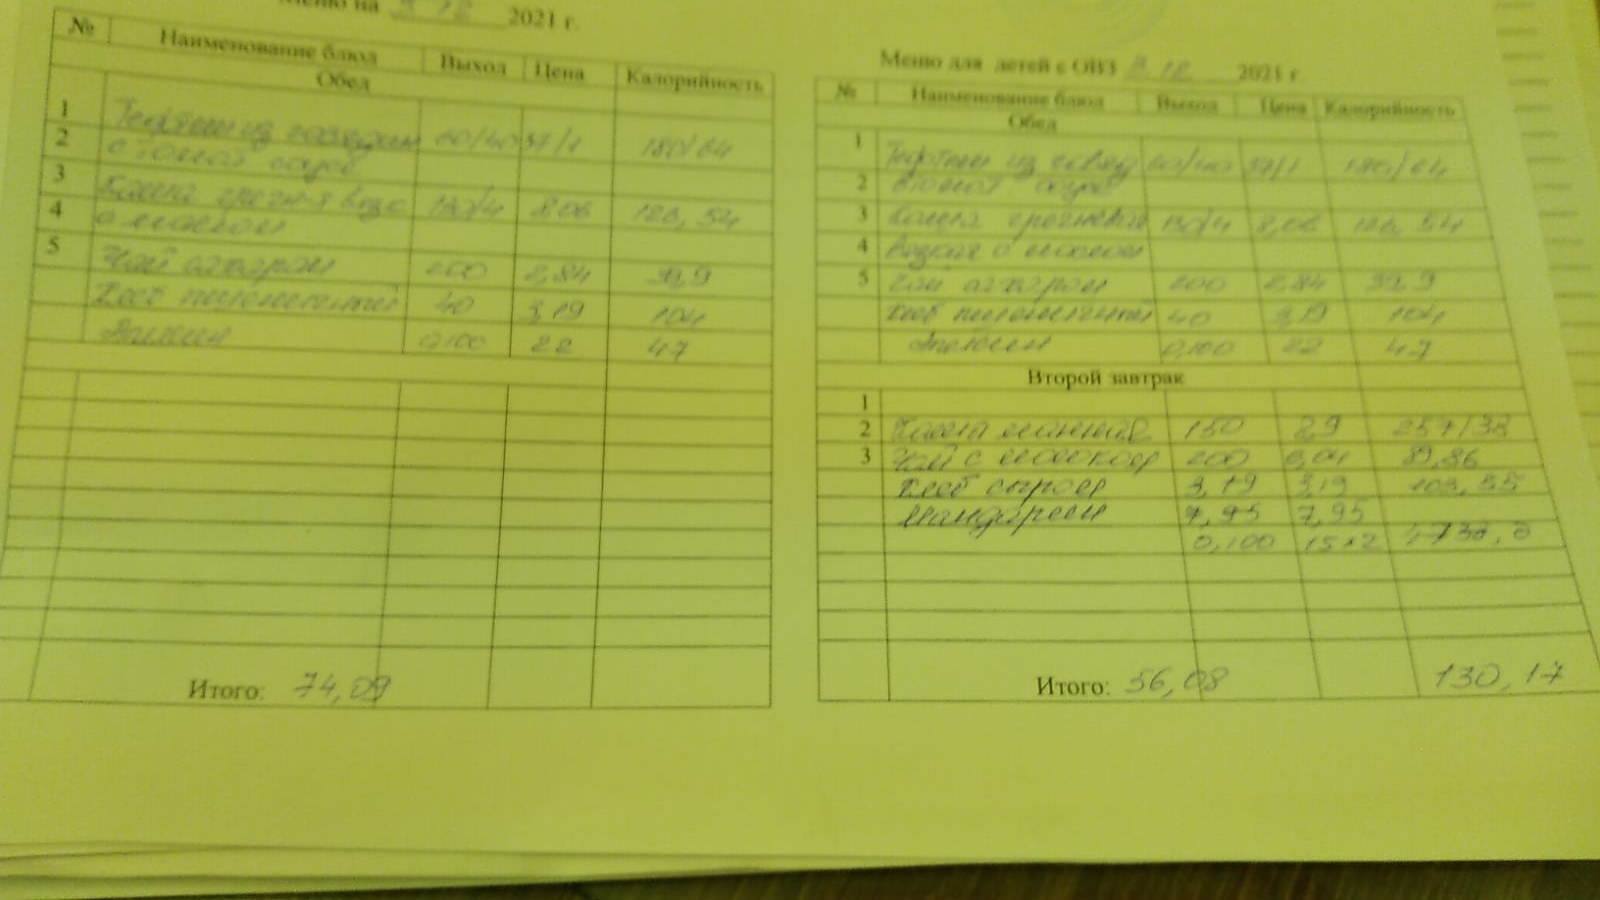 Меню на 3 12 2021 г.
№ Наименование блюд Выход Цена Калорийность
Обед
1 Тефтели из говядин 60/40 37/1 180/64
2 с томат соусе
3 Каша гречн-я вязк 150/4 8.06 128,54
4 с маслом
5 Чай сахаром 200 2,84 39,9
Хлеб пшеничный 40 3,19 104
Апельсин 0,100 22 47
Итого: 74,09
Меню для детей с ОВЗ 3 12 2021 г
№ Наименование блюд Выход Цена Калорийность
Обед
1 Тефтели из говяд 60/40 37/1 180/64
2 в томат соусе
3 Каша гречневая 150/4 8,06 128,54
4 вязкая с маслом
5 Чай сахаром 200 2,84 39,9
Хлеб пшеничный 40 3,19 104
Апельсин 0,100 22 47
Второй завтрак
1
2 Каша манная 150 257/38
3 Чай с молоком 200 89,86
Хлеб сыром 3,19
Мандарин 7,95 7,95
0,100
Итого: 56,08 130,17